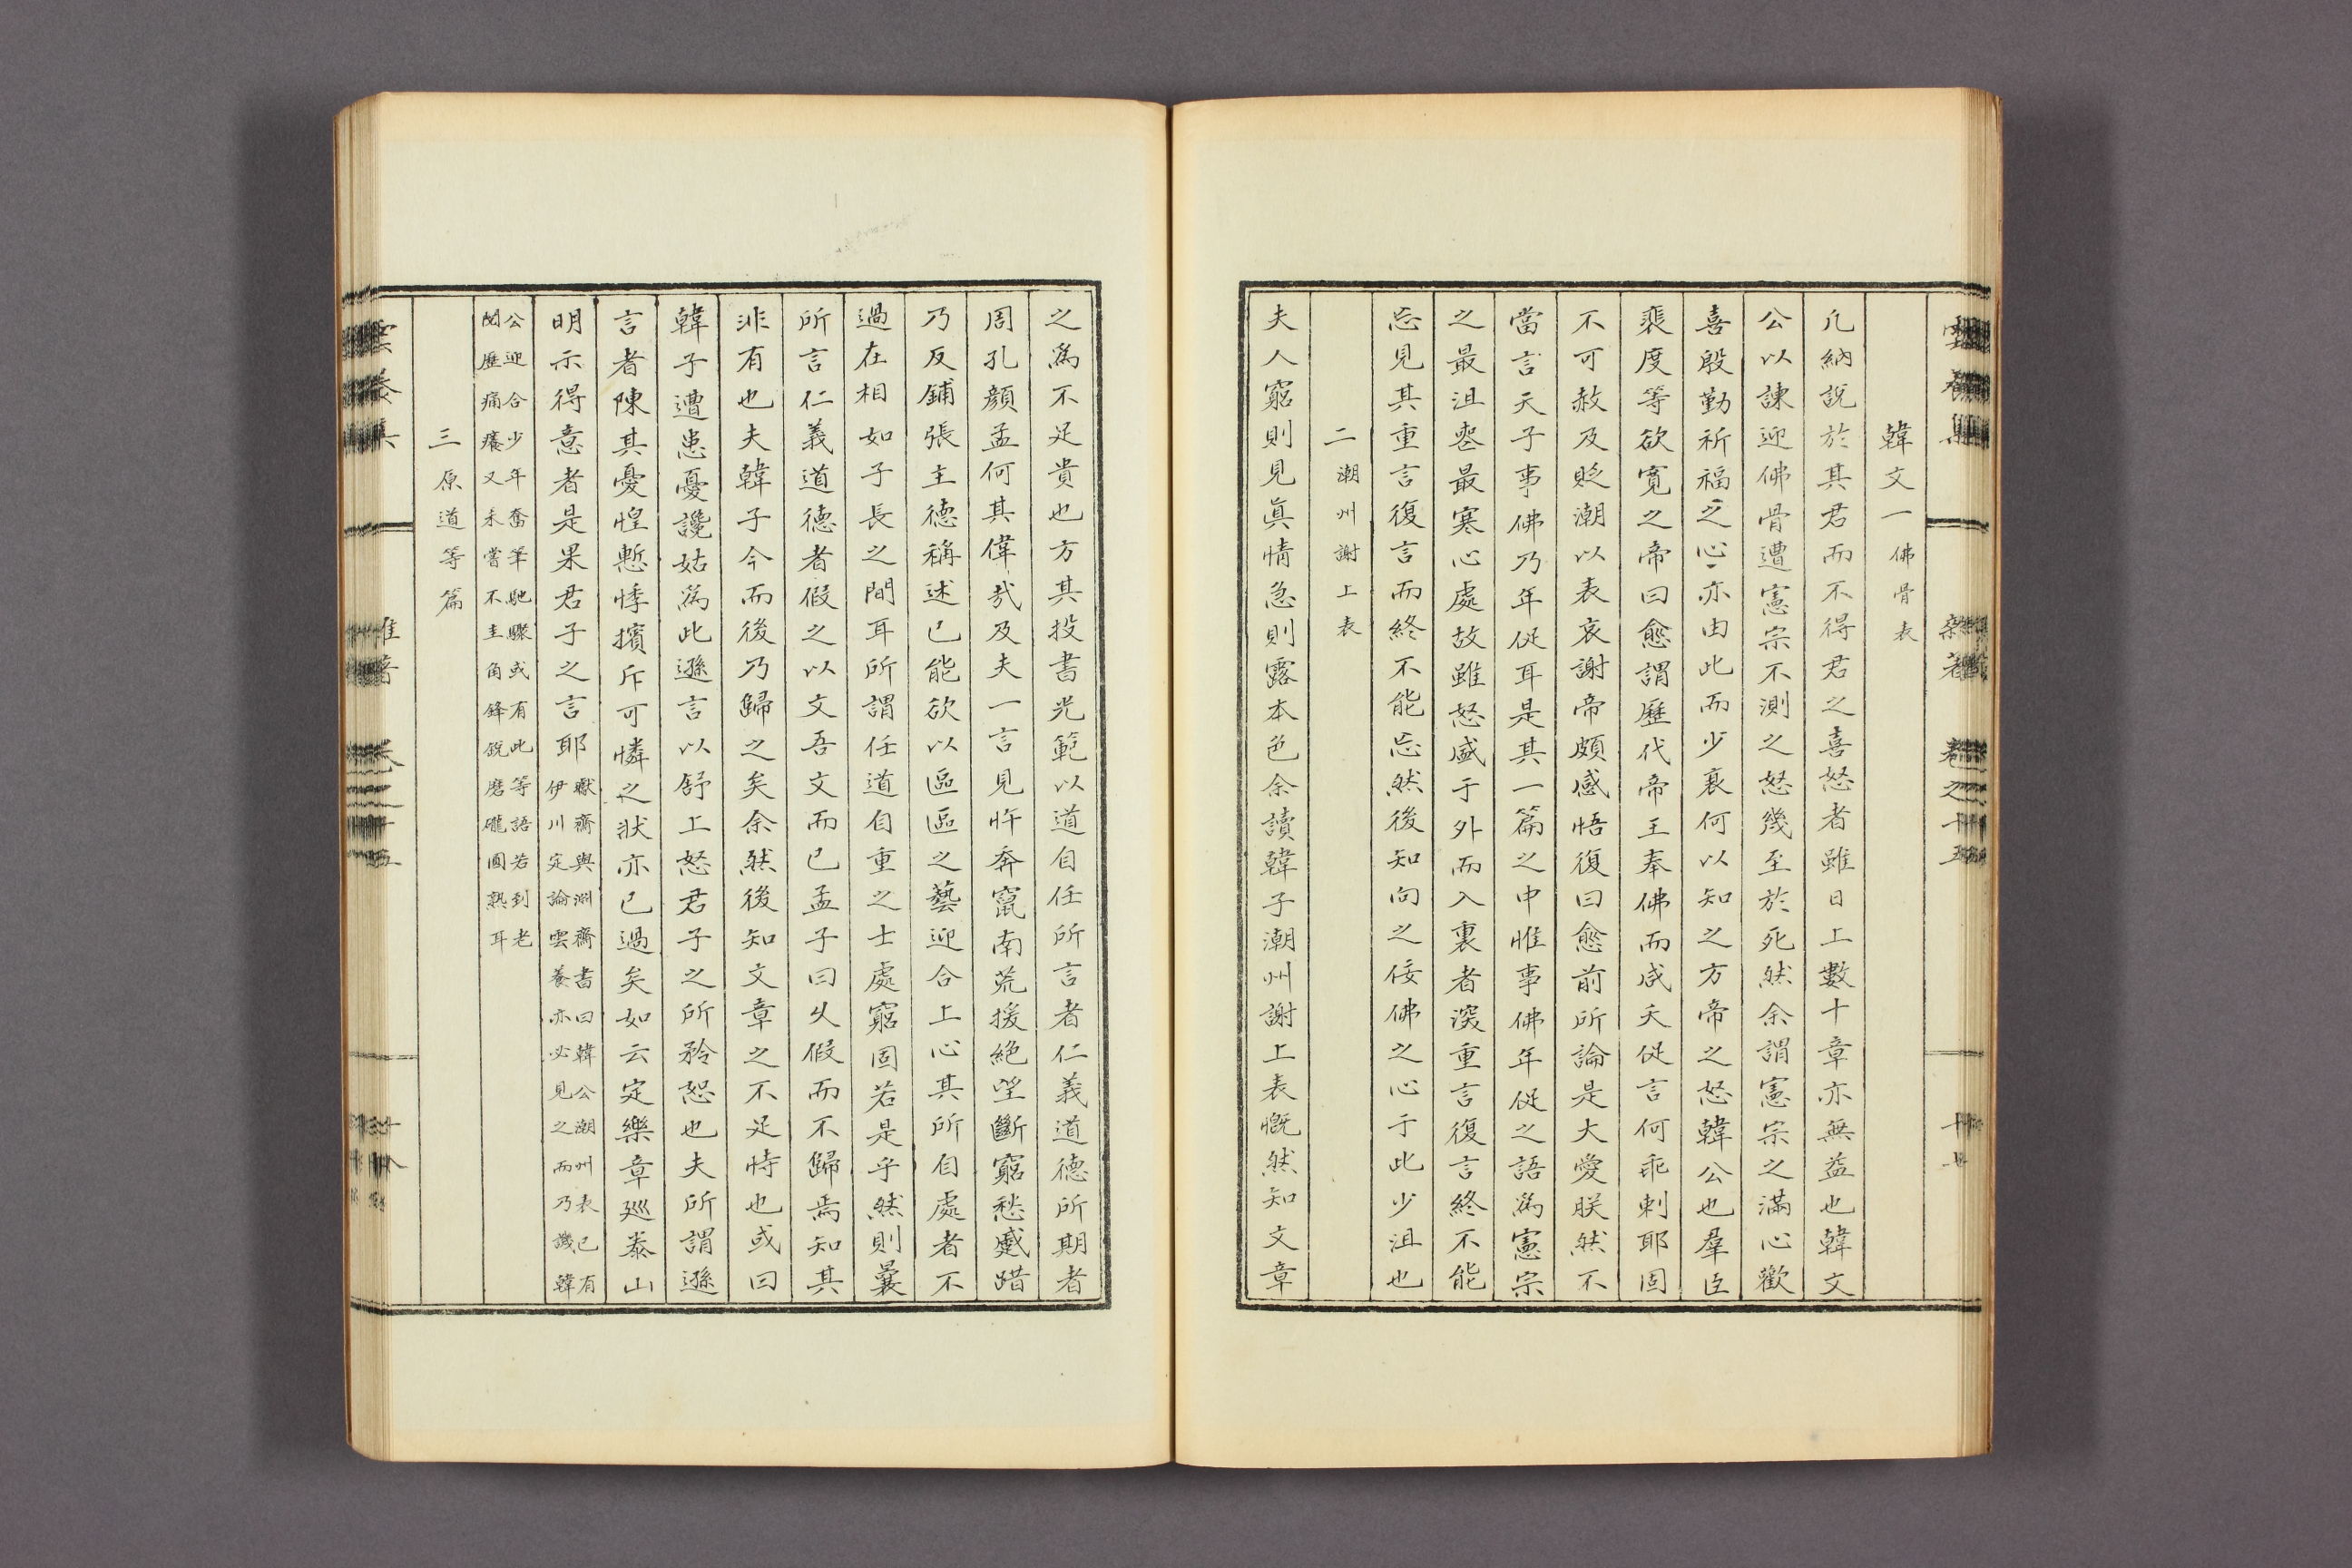 韓文一 佛骨表
凡納說於其君而不得君之喜怒者雖日上數十章亦無益也韓文
公以諫迎佛骨遭憲宗不測之怒幾至於死然余謂憲宗之滿心歡
喜殷勤祈福之心亦由此而少衰何以知之方帝之怒韓公也羣臣
裴度等欲寬之帝曰愈謂歷代帝王奉佛而咸夭促言何乖剌耶固
不可赦及貶潮以表哀謝帝頗感悟復曰愈前所論是大愛朕然不
當言天子事佛乃年促耳是其一篇之中惟事佛年促之語爲憲宗
之最沮喪最寒心處故雖怒盛于外而入裏者深重言復言終不能
忘見其重言復言而終不能忘然後知向之佞佛之心于此少沮也
二 潮州謝上表
夫人窮則見眞情急則露本色余讀韓子潮州謝上表慨然知文章
之爲不足貴也方其投書光範以道自任所言者仁義道德所期者
周孔顏孟何其偉哉及夫一言見忤奔竄南荒援絕望斷窮愁蹙踖
乃反鋪張主德稱述已能欲以區區之藝迎合上心其所自處者不
過在相如子長之間耳所謂任道自重之士處窮固若是乎然則曩
所言仁義道德者假之以文吾文而已孟子曰久假而不歸焉知其
非有也夫韓子今而後乃歸之矣余然後知文章之不足恃也或曰
韓子遭患憂讒姑爲此遜言以舒上怒君子之所矜恕也夫所謂遜
言者陳其憂惶慙悸擯斥可憐之狀亦已過矣如云定樂章巡泰山
明示得意者是果君子之言耶 獻齋與淵齋書曰韓公潮州表已有
伊川定論雲養亦必見之而乃譏韓
公迎合少年奮筆馳驟或有此等語若到老
閱歷痛癢又未嘗不圭角鋒銳磨礲圓熟耳
三 原道等篇